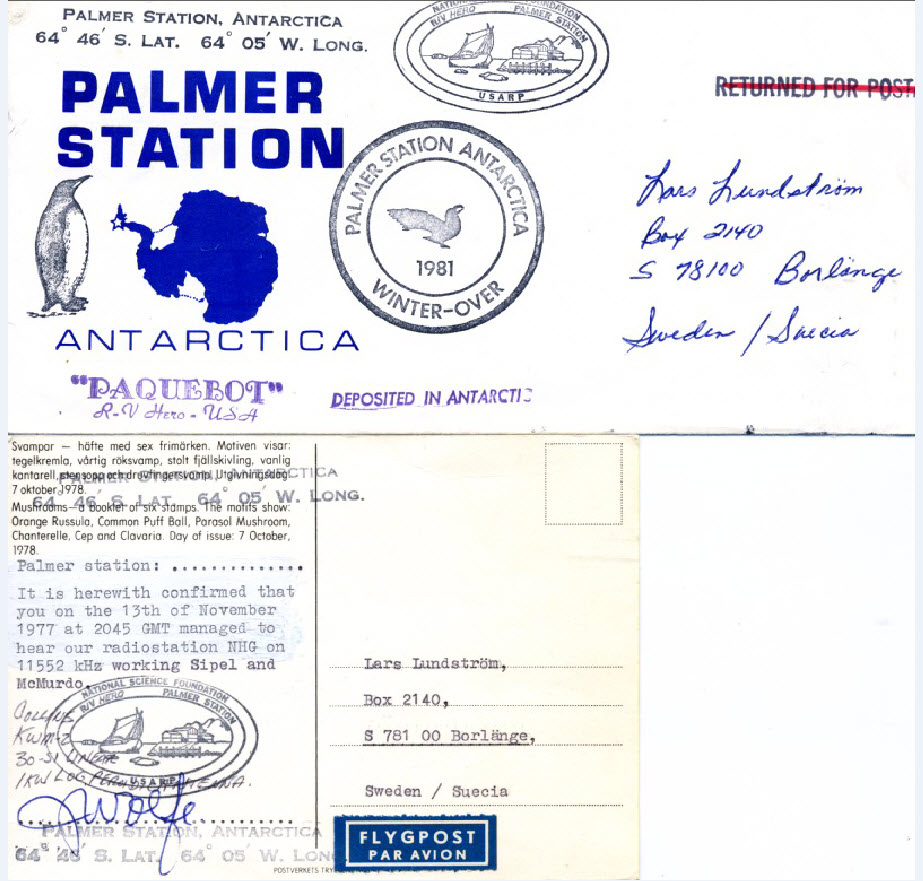 PALMER STATION, ANTARCTICA
64° 46′ S. LAT. 64° 05′ W. LONG.
NATIONAL SCIENCE FOUNDATION
R/V HERO PALMER STATION
USARP
RETURNED FOR POST
PALMER
STATION
PALMER STATION ANTARCTICA
1981
WINTER-OVER
Lars Lundström
Box 2140
S 78100 Borlänge
Sweden / Suecia
ANTARCTICA
"PAQUEBOT"
R-V Hero - USA
DEPOSITED IN ANTARCTIC
Svampar — häfte med sex frimärken. Motiven visar:
tegelkremla, vårtig röksvamp, stolt fjällskivling, vanlig
kantarell, stensopp och druvfingersvamp. Utgivningsdag:
7 oktober 1978.
PALMER STATION, ANTARCTICA
64° 46′ S. LAT. 64° 05′ W. LONG.
Mushrooms—a booklet of six stamps. The motifs show:
Orange Russula, Common Puff Ball, Parasol Mushroom,
Chanterelle, Cep and Clavaria. Day of issue: 7 October,
1978.
Palmer station: ..............
It is herewith confirmed that
you on the 13th of November
1977 at 2045 GMT managed to
hear our radiostation NHG on
11552 kHz working Sipel and
McMurdo.
NATIONAL SCIENCE FOUNDATION
R/V HERO PALMER STATION
USARP
COLLINS
KWM-2
30-S1 LINEAR
1KW LOG PERIODIC ANTENNA.
JWolfe
PALMER STATION, ANTARCTICA
64° 46′ S. LAT. 64° 05′ W. LONG.
Lars Lundström,
Box 2140,
S 781 00 Borlänge,
Sweden / Suecia
FLYGPOST
PAR AVION
POSTVERKETS